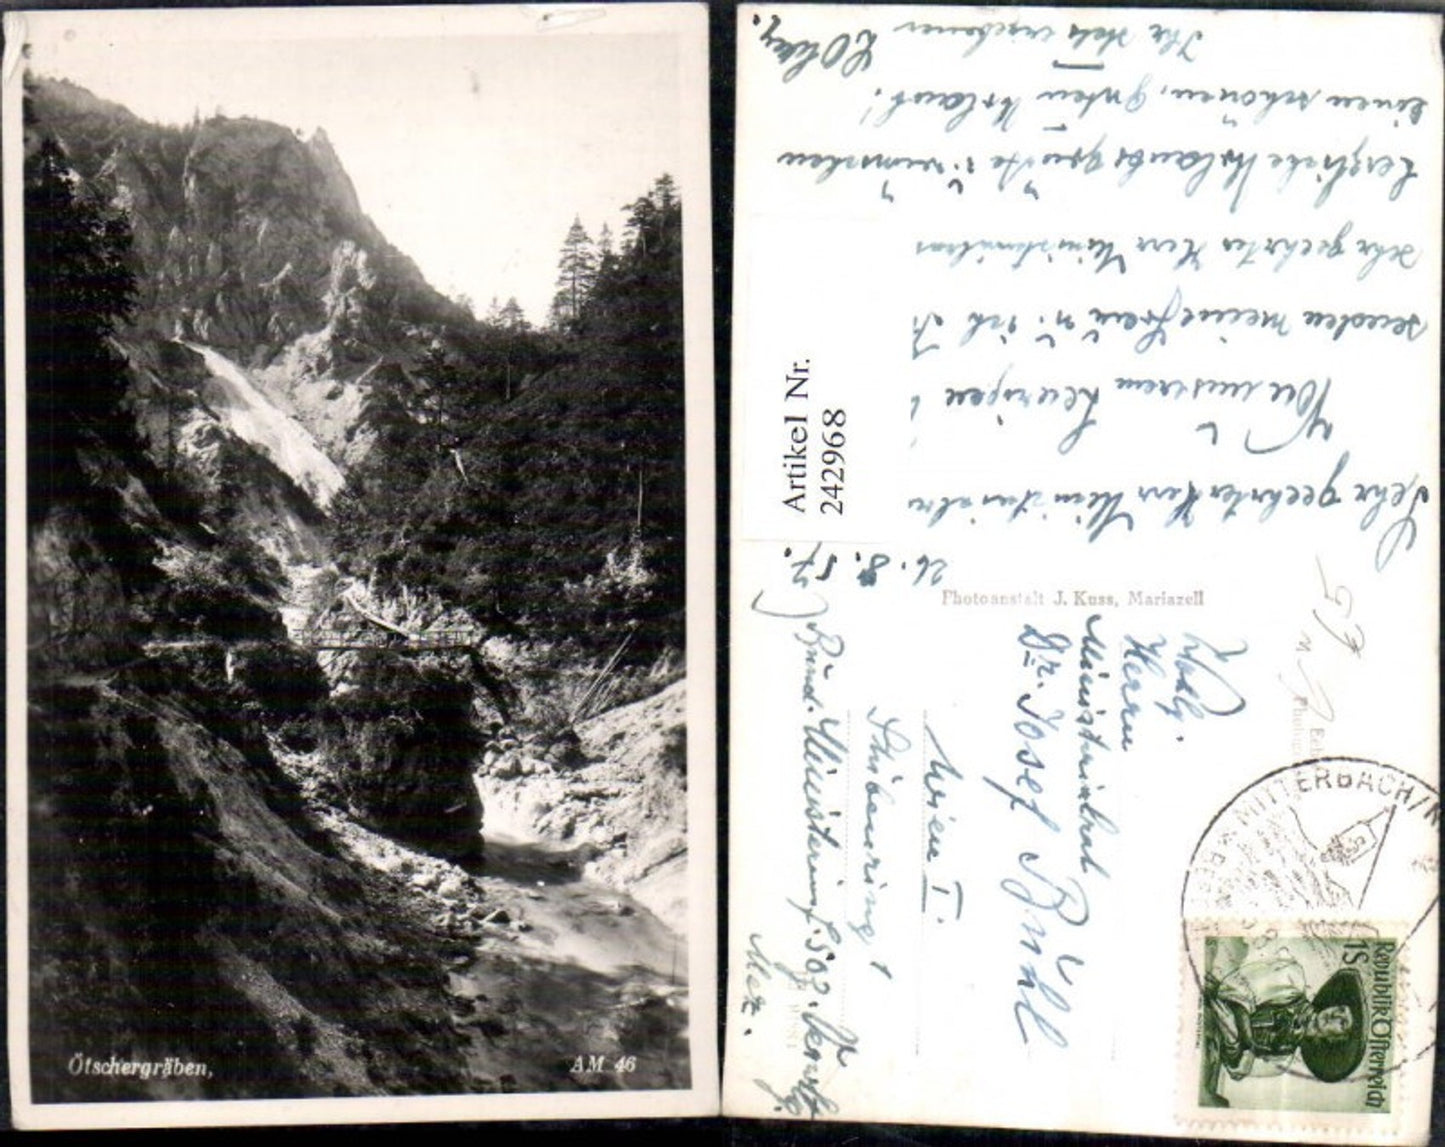 Ötschergräben,
AM 46
Artikel Nr.
242968
26. 8. 57.
Sehr geehrter Herr Ministerialra
Von unserem heurigen
senden meine Frau u. ich
sehr geehrter Herr Ministerialrat
herzliche Urlaubsgrüße u. wünschen
einen schönen, guten Urlaub!
Ihr stets ergebener
Photoanstalt J. Kuss, Mariazell
Herrn
Ministerialrat
Dr. Josef Bühl
Wien I.
Stubenring 1
Bund. Ministerium f. soz. Verwltg.
MITTERBACH/
Republik Österreich
1S